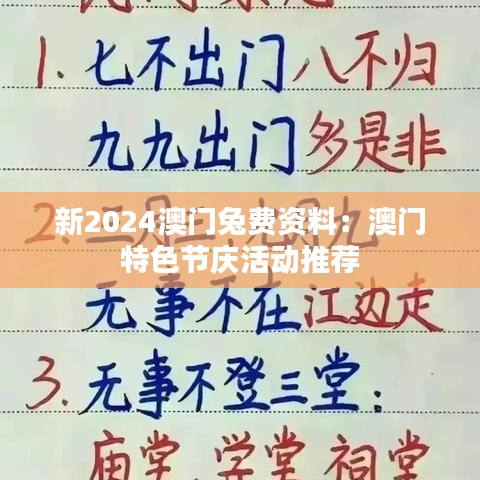 1.七不出门八不归
九九出门多是非
新2024澳门兔费资料：澳门
特色节庆活动推荐
无事不在江边走
3.无事不登三堂：
庙堂.学堂.祠堂